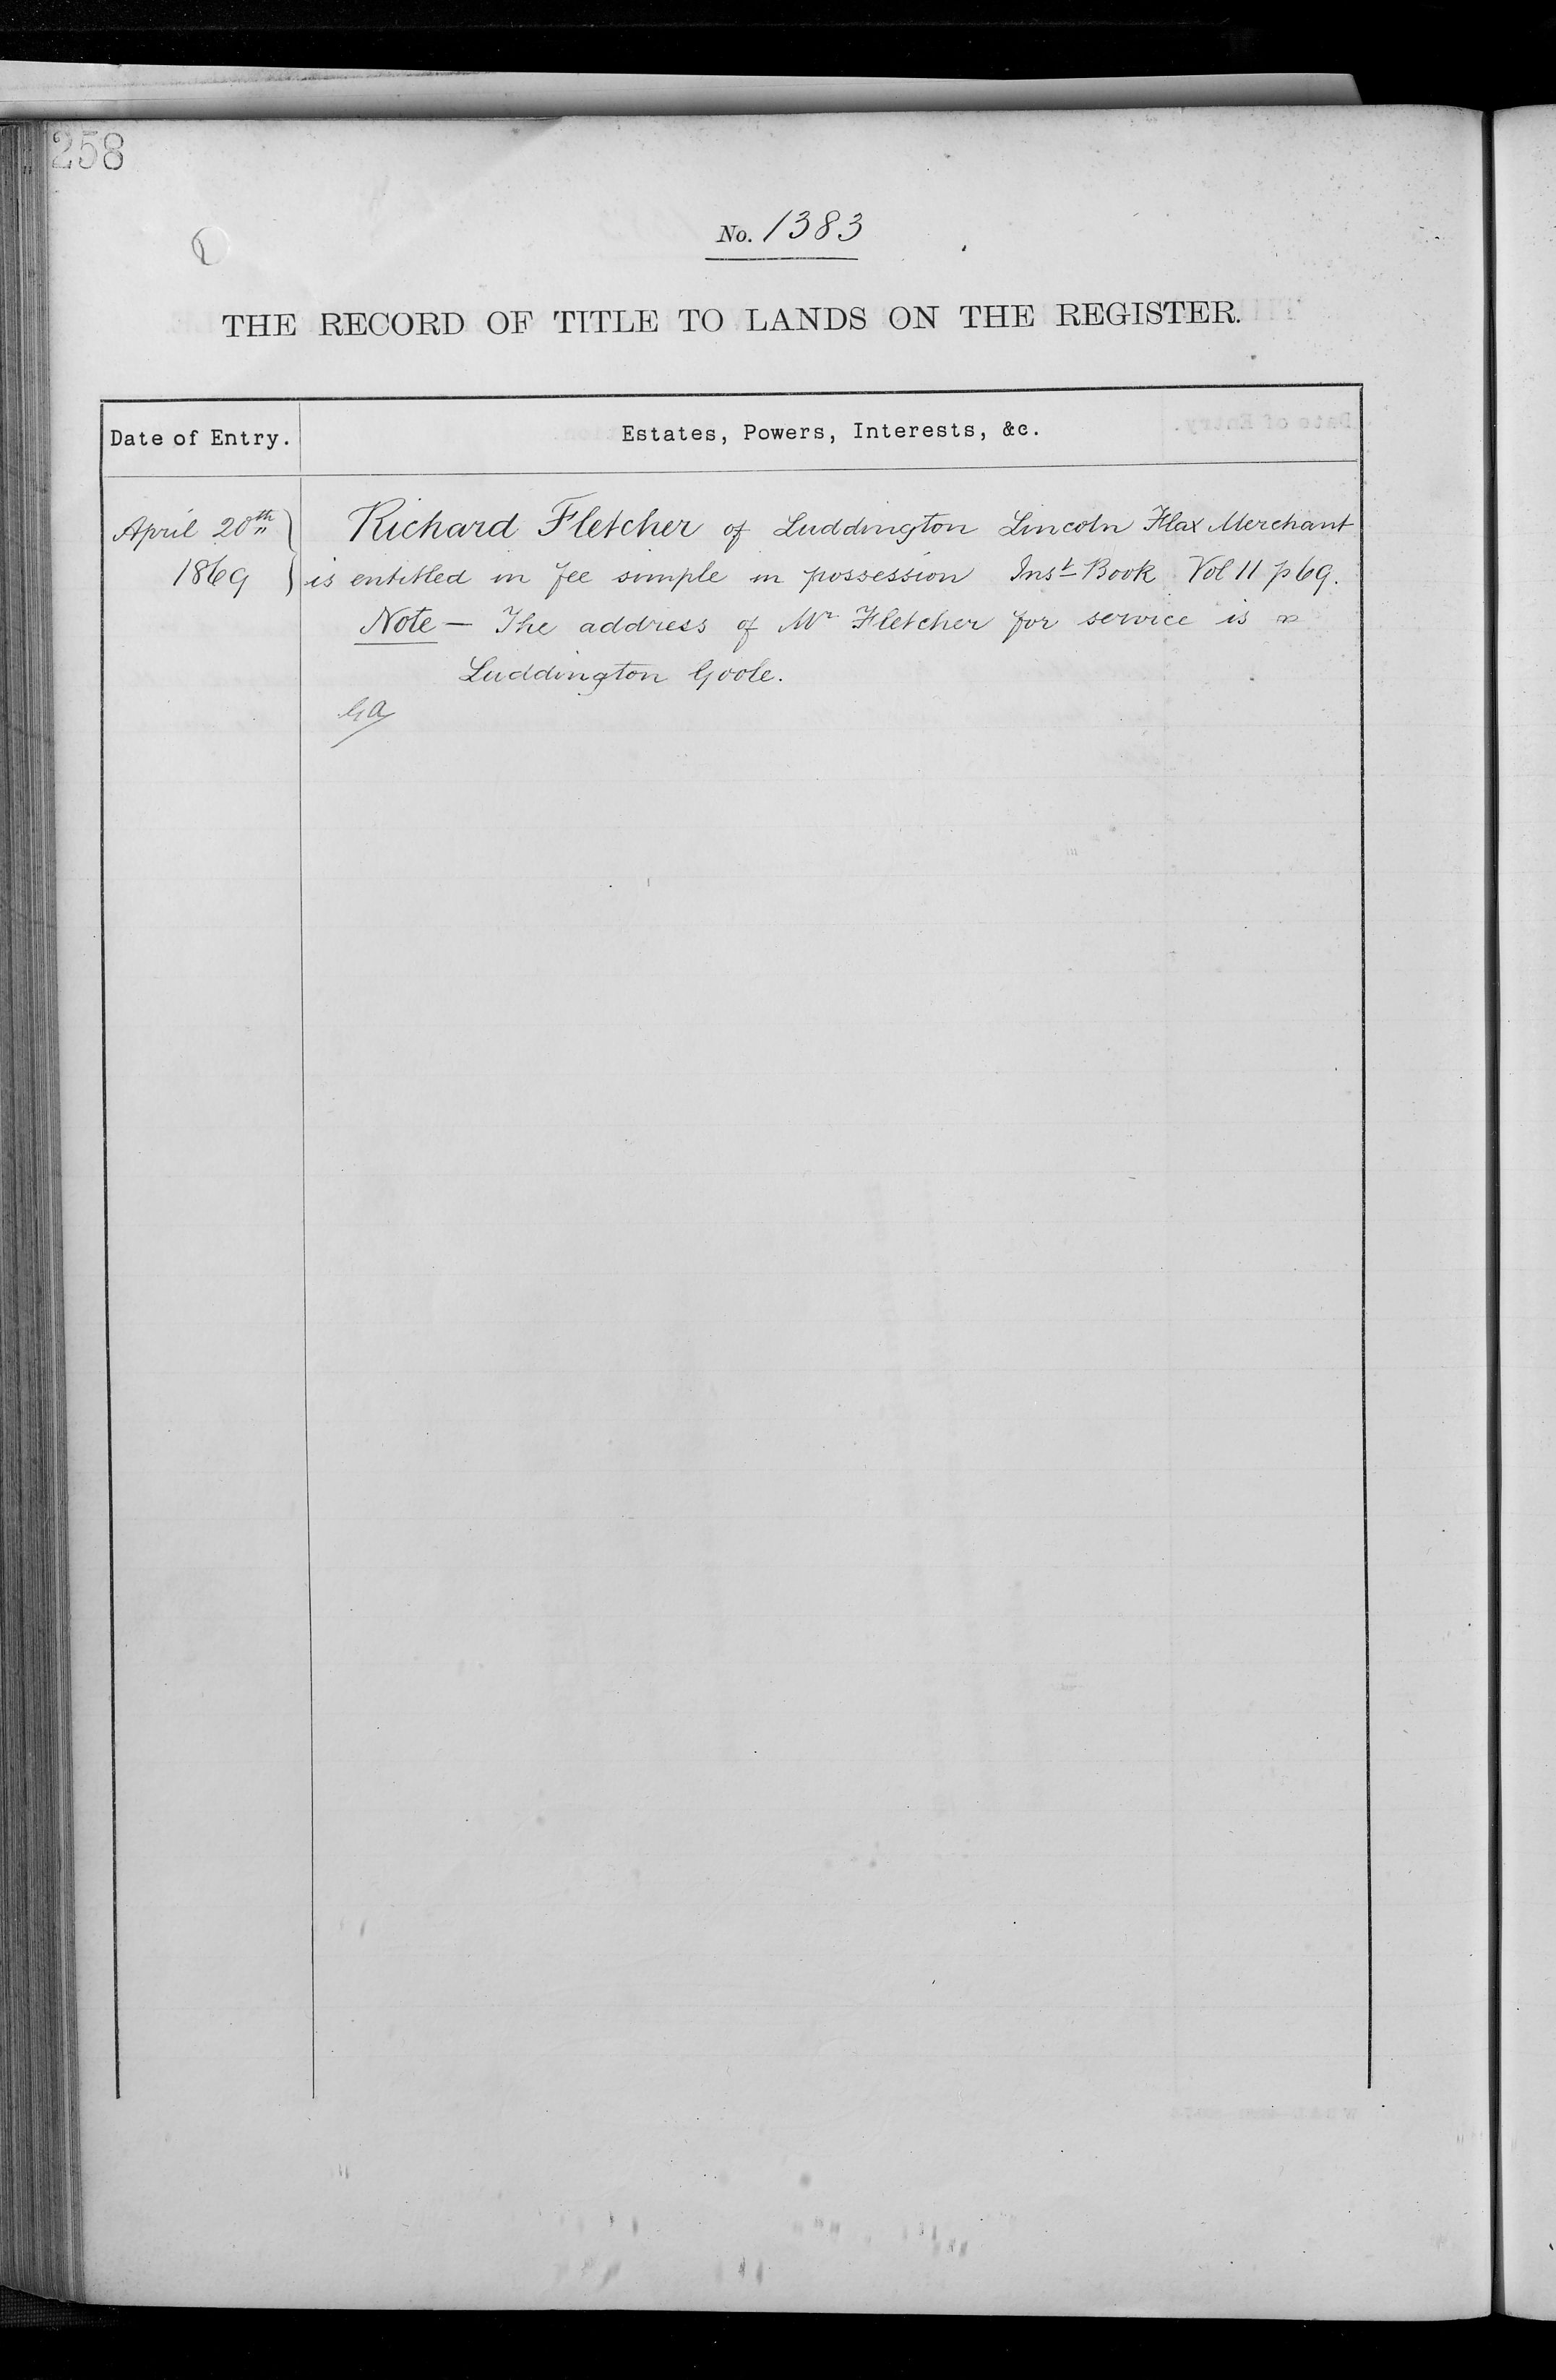 258
No. 1383
THE RECORD OF TITLE TO LANDS ON THE REGISTER.
Date of Entry.
Estates, Powers, Interests, &c.
April 20th
1869
Richard Fletcher of Luddington Lincoln Flax Merchant
is entitled in fee simple in possession Inst Book Vol 11 p 69.
Note — The address of Mr Fletcher for service is
Luddington Goole.